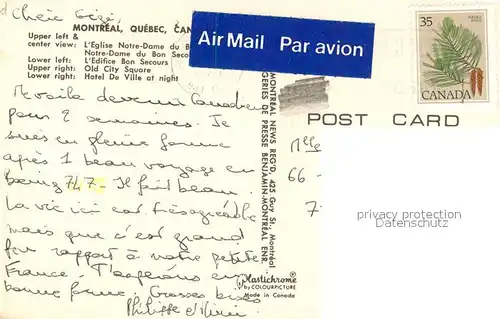 Chère Gégé,
MONTRÉAL, QUÉBEC, CAN
Upper left &
center view: L'Eglise Notre-Dame du B
Notre-Dame du Bon Seco
Lower left: L'Edifice Bon Secours
Upper right: Old City Square
Lower right: Hotel De Ville at night
Air Mail Par avion
35
CANADA
POST CARD
Me voilà devenu Canadien
pour 2 semaines. Je
suis en pleine forme
après 1 beau voyage en
boeing 747. Il fait beau.
La vie ici est très agréable
mais que c'est grand
par rapport à notre petite
France. J'espère en
bonne forme. Grosses bises
Philippe et
MONTRÉAL NEWS REG'D, 425 Guy St., Montréal
GERIES DE PRESSE BENJAMIN-MONTRÉAL ENR.
Plastichrome
by COLOURPICTURE
Made in Canada
Mlle
66 -
7
privacy protection
Datenschutz